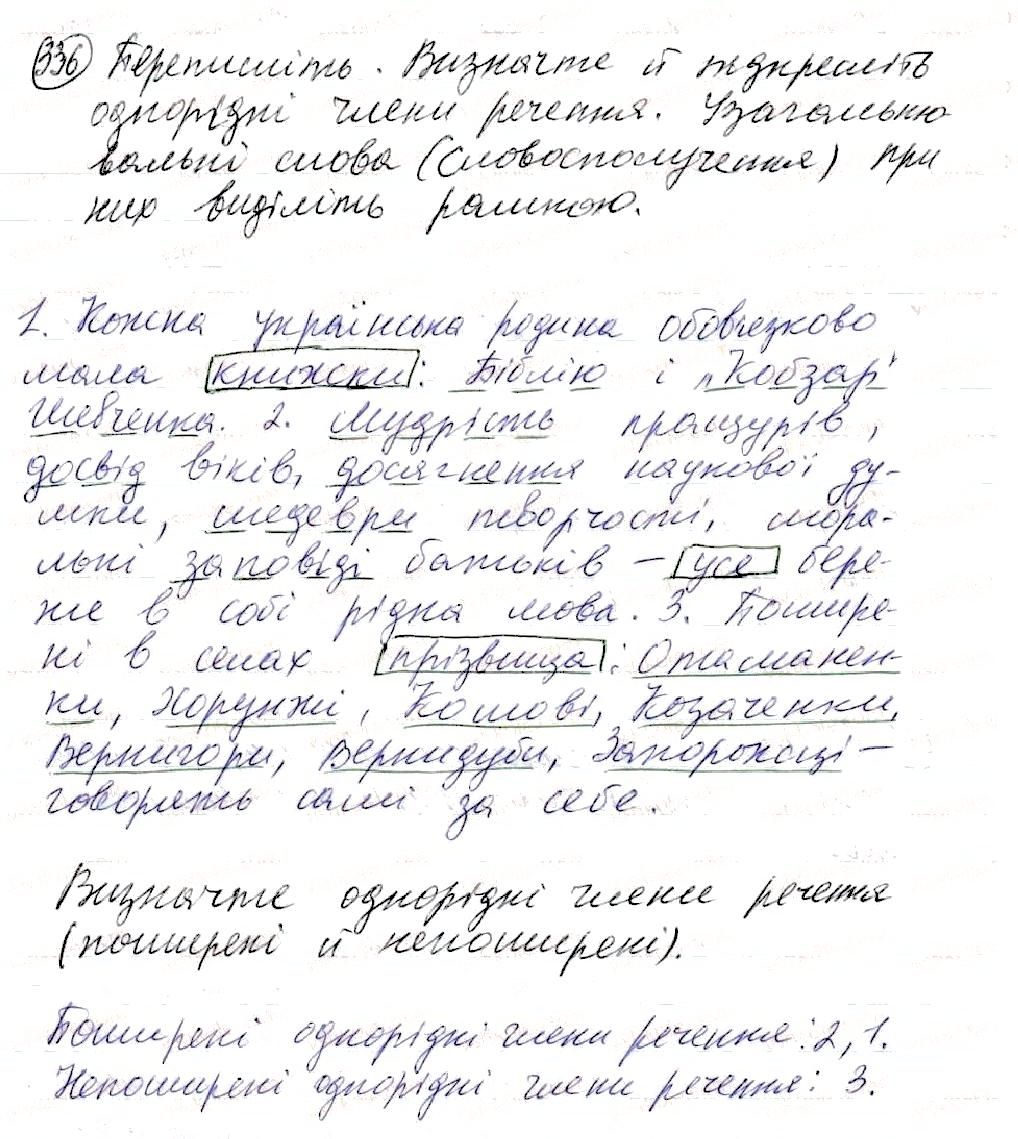 336 Перепишіть. Визначте й підкресліть
однорідні члени речення. Узагальню
вальні слова (словосполучення) при
них виділіть рамкою.
1. Кожна українська родина обов'язково
мала книжки: Біблію і "Кобзар"
Шевченка. 2. Мудрість пращурів,
досвід віків, досягнення наукової ду-
мки, шедеври творчості, мора-
льні заповіді батьків – усе бере-
же в собі рідна мова. 3. Пошире-
ні в селах прізвища: Отаманен-
ки, Хорунжі, Кошові, Козаченки,
Вернигори, Вернидуби, Запорожці –
говорять самі за себе.
Визначте однорідні члени речення
(поширені й непоширені).
Поширені однорідні члени речення: 2, 1.
Непоширені однорідні члени речення: 3.